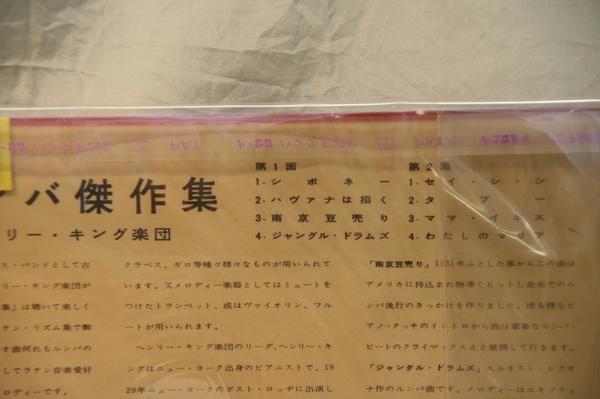 バ傑作集
リー・キング楽団
第1面
1. シボネー
2. ハヴァナは招く
3. 南京豆売り
4. ジャングル・ドラムズ
第2面
1. セイ・シ・シ
2. タブー
3. ママ・イネス
4. わたしのマリア
ス・バンドとして古
リー・キング楽団が
集」は聴いて楽しく
テン・リズム集で御
す曲何れもルンバの
してラテン音楽愛好
ロディーです。
クラベス、ギロ等種々様々なものが用いられて
います。又メロディー楽器としてはミュートを
つけたトランペット、或はヴァイオリン、フル
ートが用いられます。
ヘンリー・キング楽団のリーダ、ヘンリー・キ
ングはニュー・ヨーク出身のピアニストで、19
29年ニュー・ヨークのポスト・ロッヂに出演し
「南京豆売り」1931年ふとした事からこの曲は
アメリカに持込まれ物凄くヒットし全米でのル
ンバ流行のきっかけを作りました。滑る様なピ
アノ・タッチのイントロから曲は豪華なルンバ・
ビートのクライマックスえと展開して行きます。
「ジャングル・ドラムズ」エルネスト・レクオ
ナ作のルンバ曲です。メロディーはエキゾティ